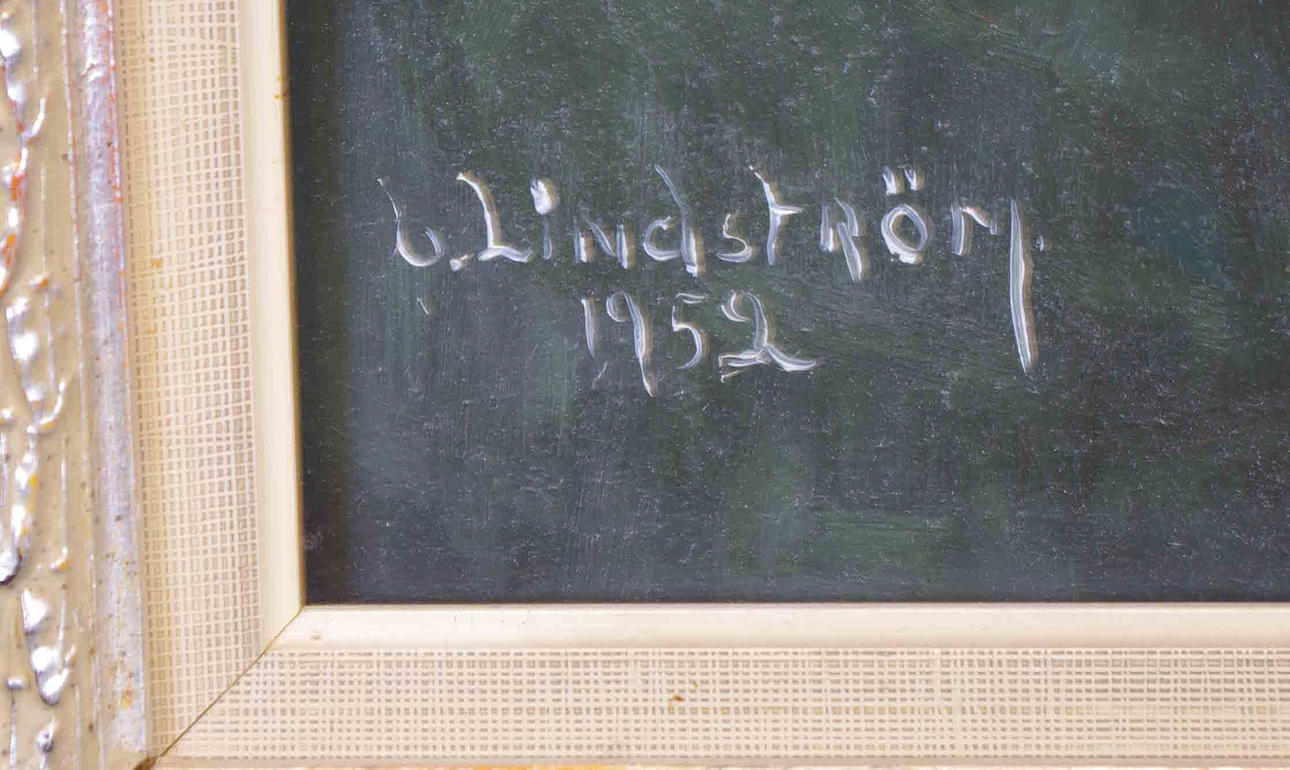 Lindström.
1952